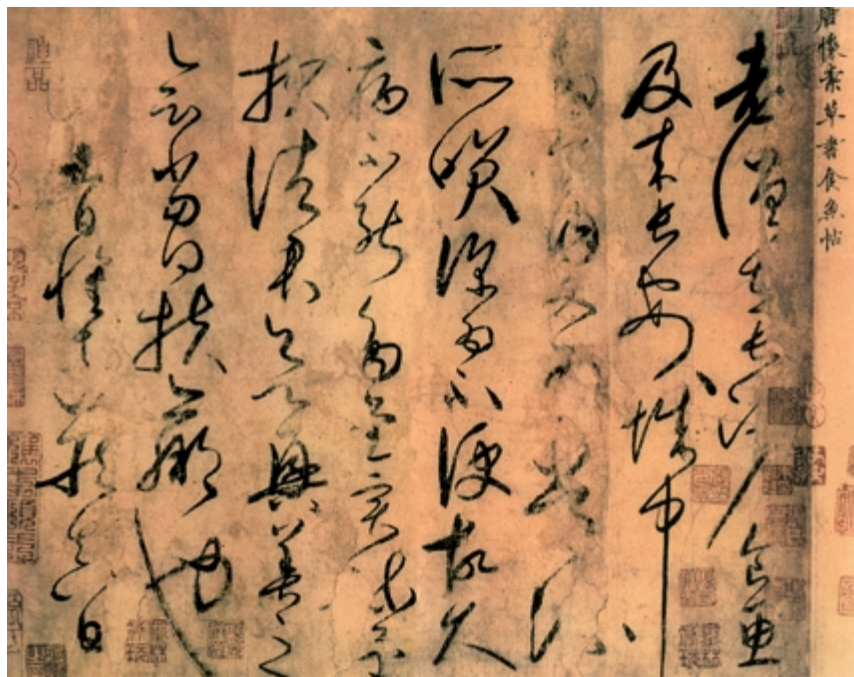 唐懷素草書食魚帖
老僧在長沙食魚
及來長安城中
多食肉又為常流
所笑深為不便故久
病不能多書實疏還
報諸君欲興善之
會當得扶羸也
九日懷素藏真白